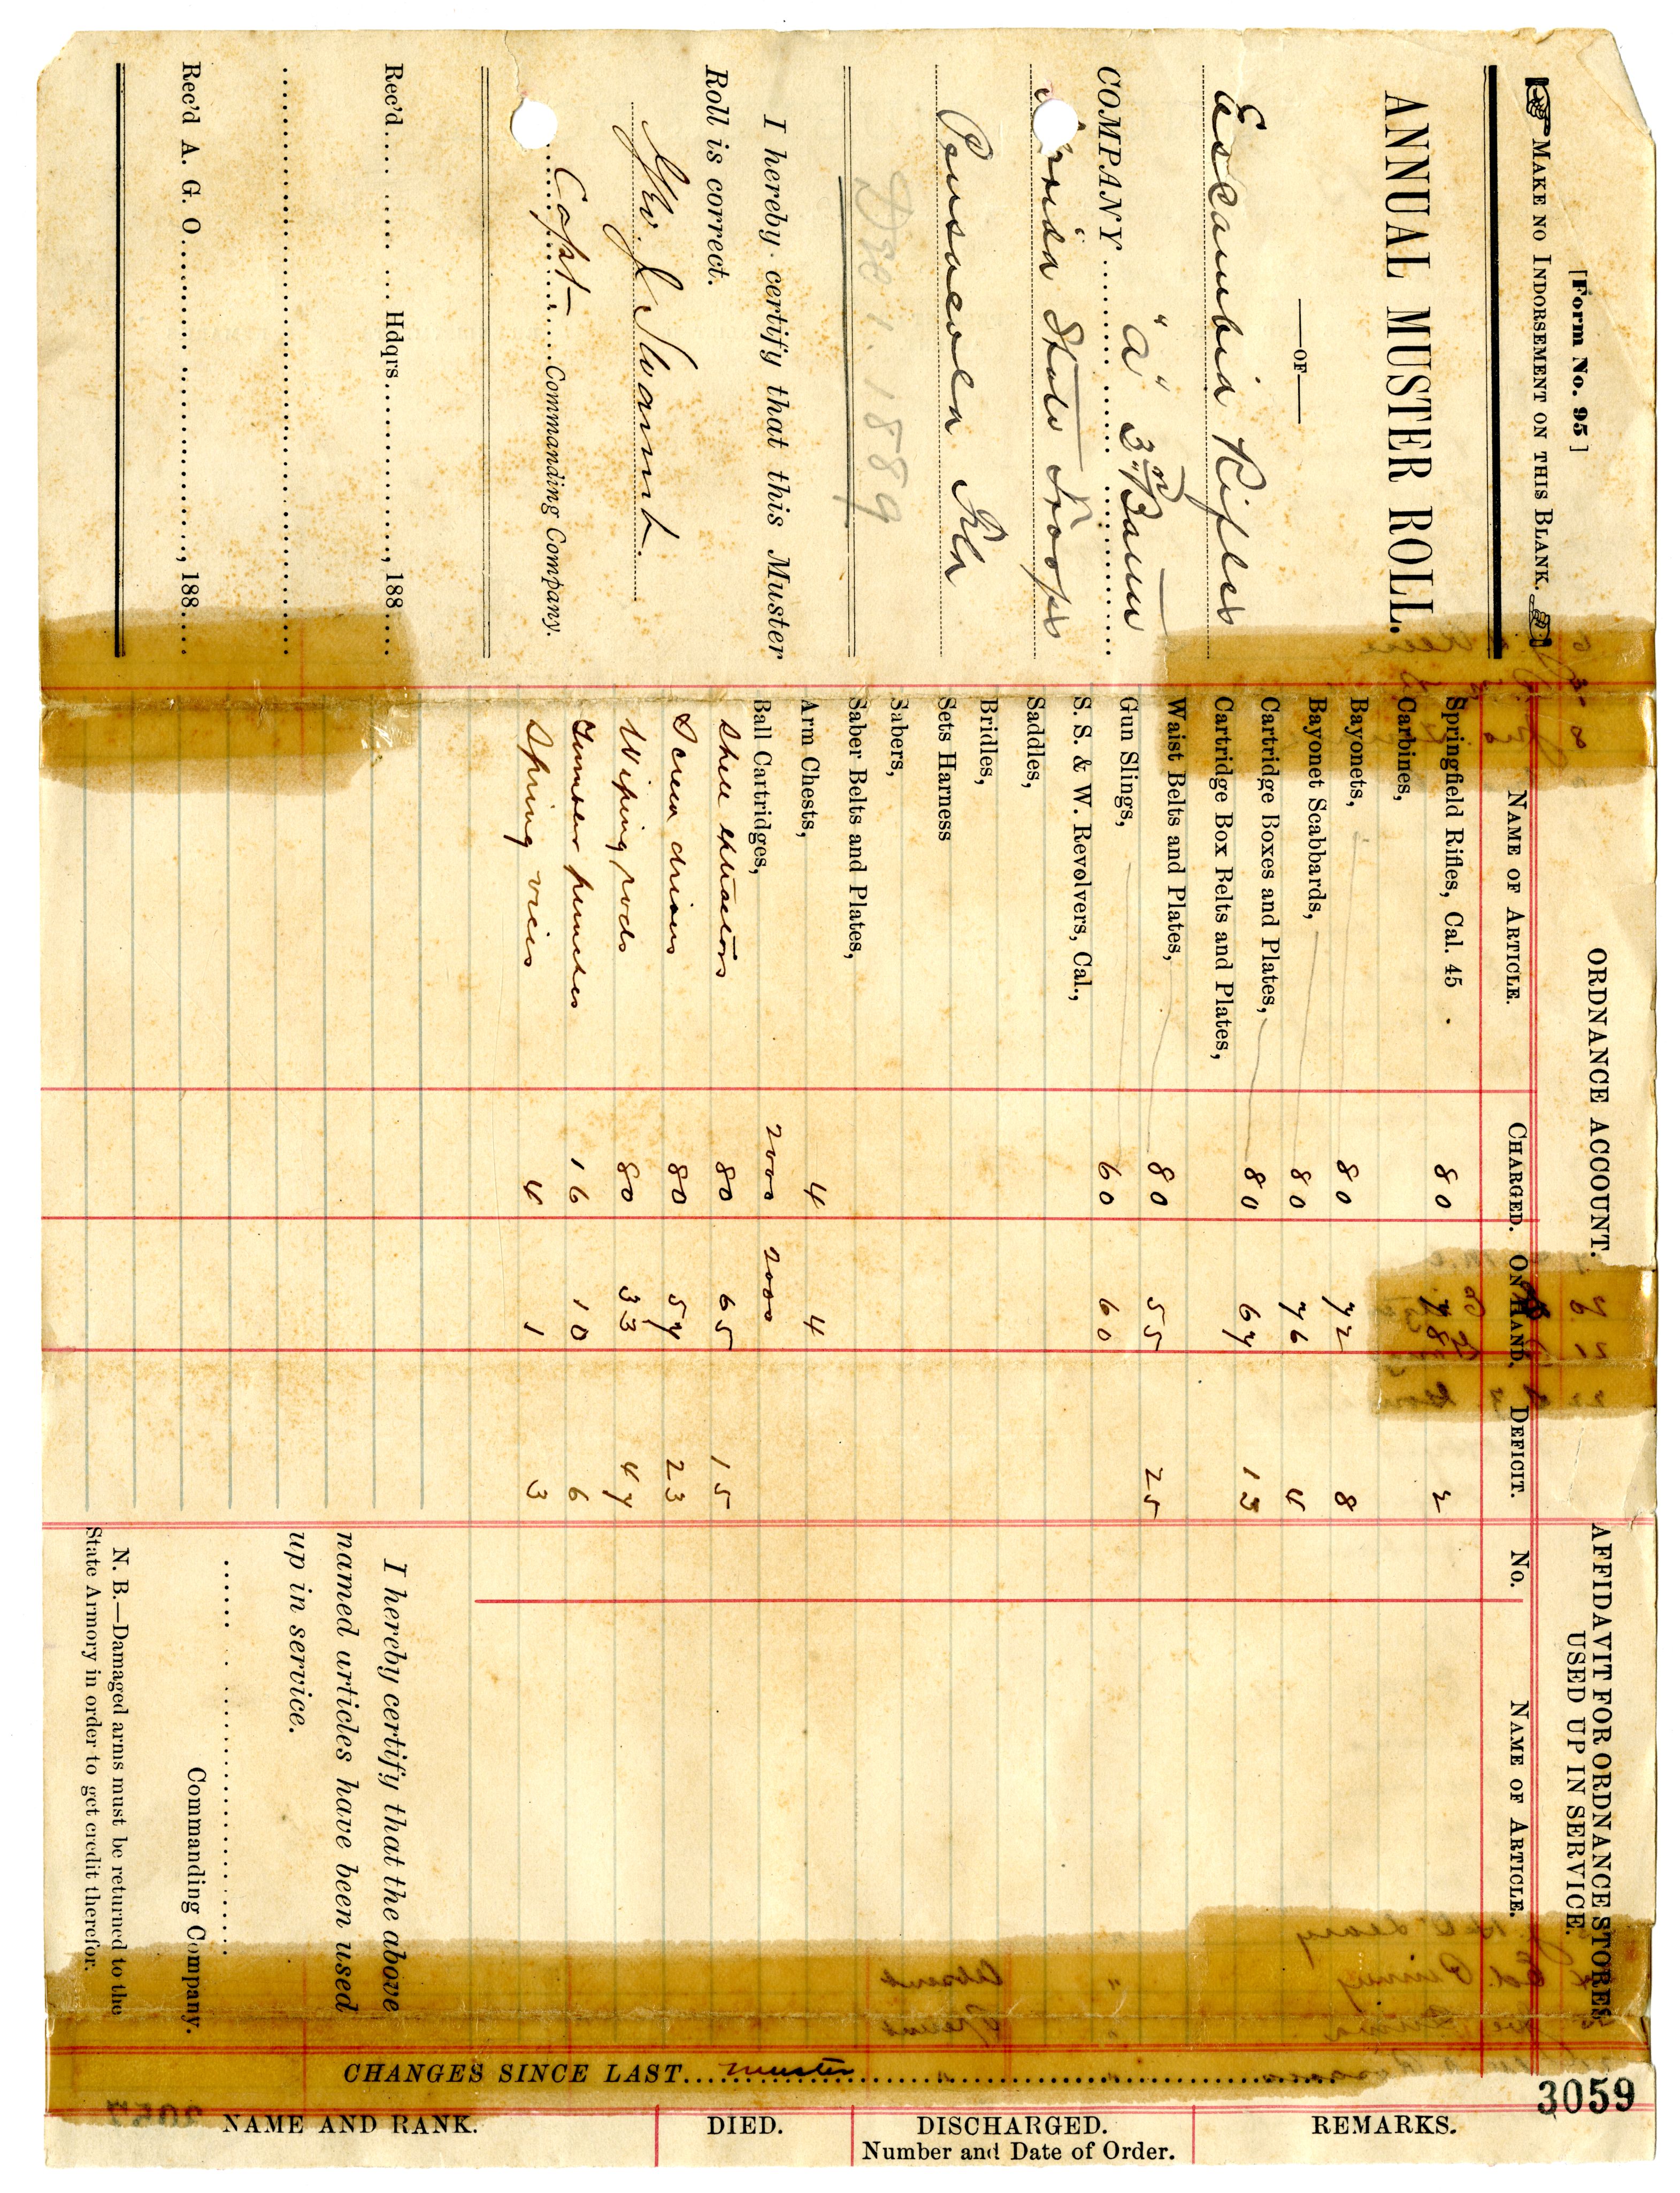 [Form No. 95]
MAKE NO INDORSEMENT ON THIS BLANK.
ANNUAL MUSTER ROLL.
—OF—
Escambia Rifles
COMPANY "A" 3rd Battn
Florida State Troops
Pensacola Fla
Dec 1. 1889
I hereby certify that this Muster
Roll is correct.
Commanding Company.
Capt
Rec'd Hdqrs. , 188
Rec'd A. G. O. , 188
ORDNANCE ACCOUNT.
NAME OF ARTICLE. CHARGED. ON HAND. DEFICIT.
Springfield Rifles, Cal. 45 80 78 2
Carbines,
Bayonets, 80 72 8
Bayonet Scabbards, 80 76 4
Cartridge Boxes and Plates, 80 67 13
Cartridge Box Belts and Plates,
Waist Belts and Plates, 80 55 25
Gun Slings, 60 60
S. S. & W. Revolvers, Cal.,
Saddles,
Bridles,
Sets Harness
Sabers,
Saber Belts and Plates,
Arm Chests, 4 4
Ball Cartridges, 2000 2000
Shell extractors 80 65 15
Screw drivers 80 57 23
Wiping rods 80 33 47
Tumbler punches 16 10 6
Spring vices 4 1 3
AFFIDAVIT FOR ORDNANCE STORES
USED UP IN SERVICE.
No. NAME OF ARTICLE.
I hereby certify that the above
named articles have been used
up in service.
Commanding Company.
N. B.—Damaged arms must be returned to the
State Armory in order to get credit therefor.
CHANGES SINCE LAST muster
3059
NAME AND RANK. DIED. DISCHARGED. REMARKS.
Number and Date of Order.